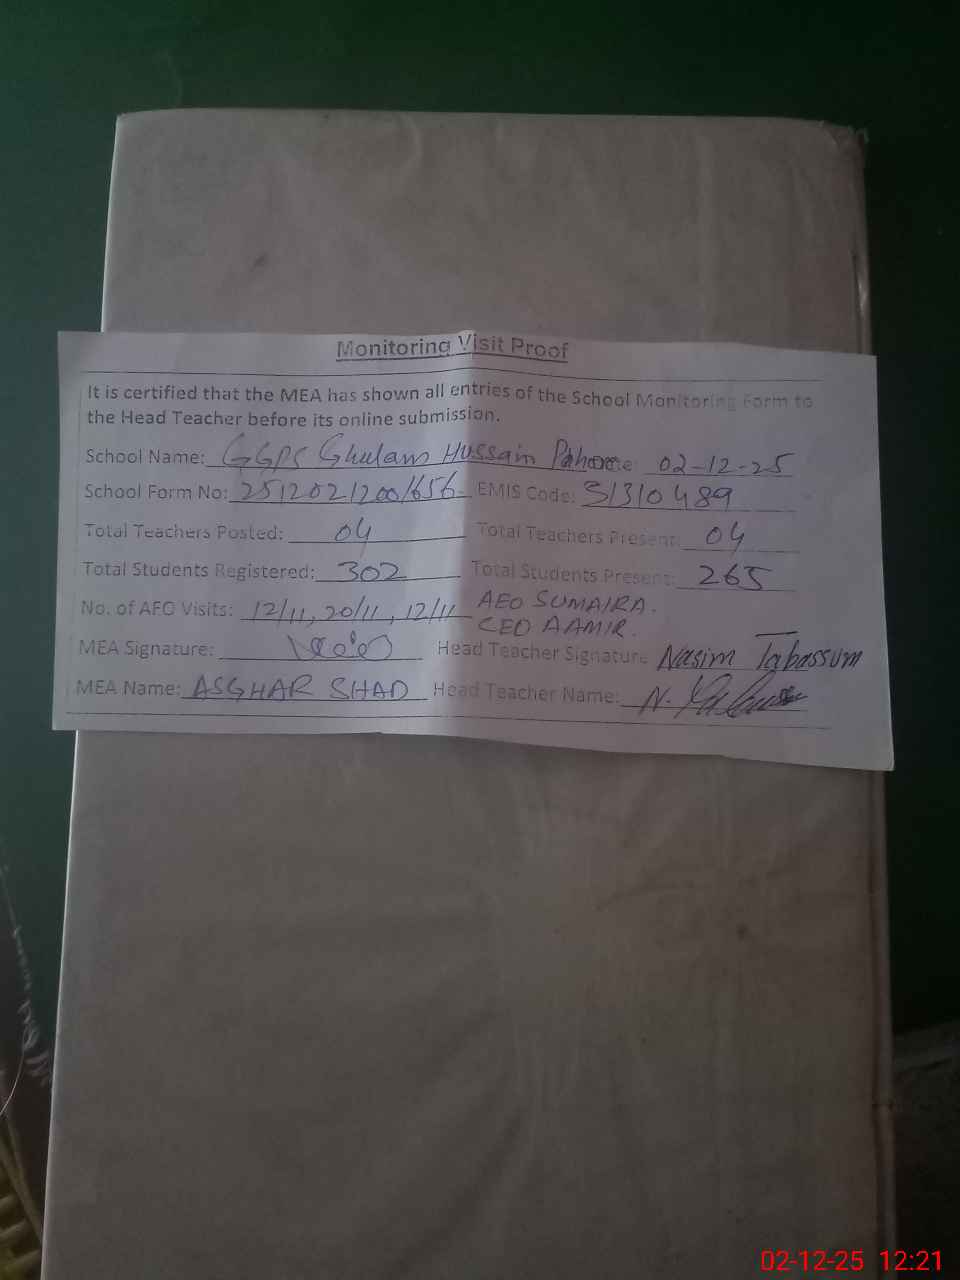 Monitoring Visit Proof
It is certified that the MEA has shown all entries of the School Monitoring Form to
the Head Teacher before its online submission.
School Name: GGPS Ghulam Hussain Date: 02-12-25
School Form No: EMIS Code: 31310489
Total Teachers Posted: 04 Total Teachers Present: 04
Total Students Registered: 302 Total Students Present: 265
No. of AEO Visits: 12/11, 20/11, 12/11 AEO SUMAIRA.
CEO AAMIR.
MEA Signature: Head Teacher Signature Nasim Tabassum
MEA Name: ASGHAR SHAD Head Teacher Name: N.
02-12-25 12:21